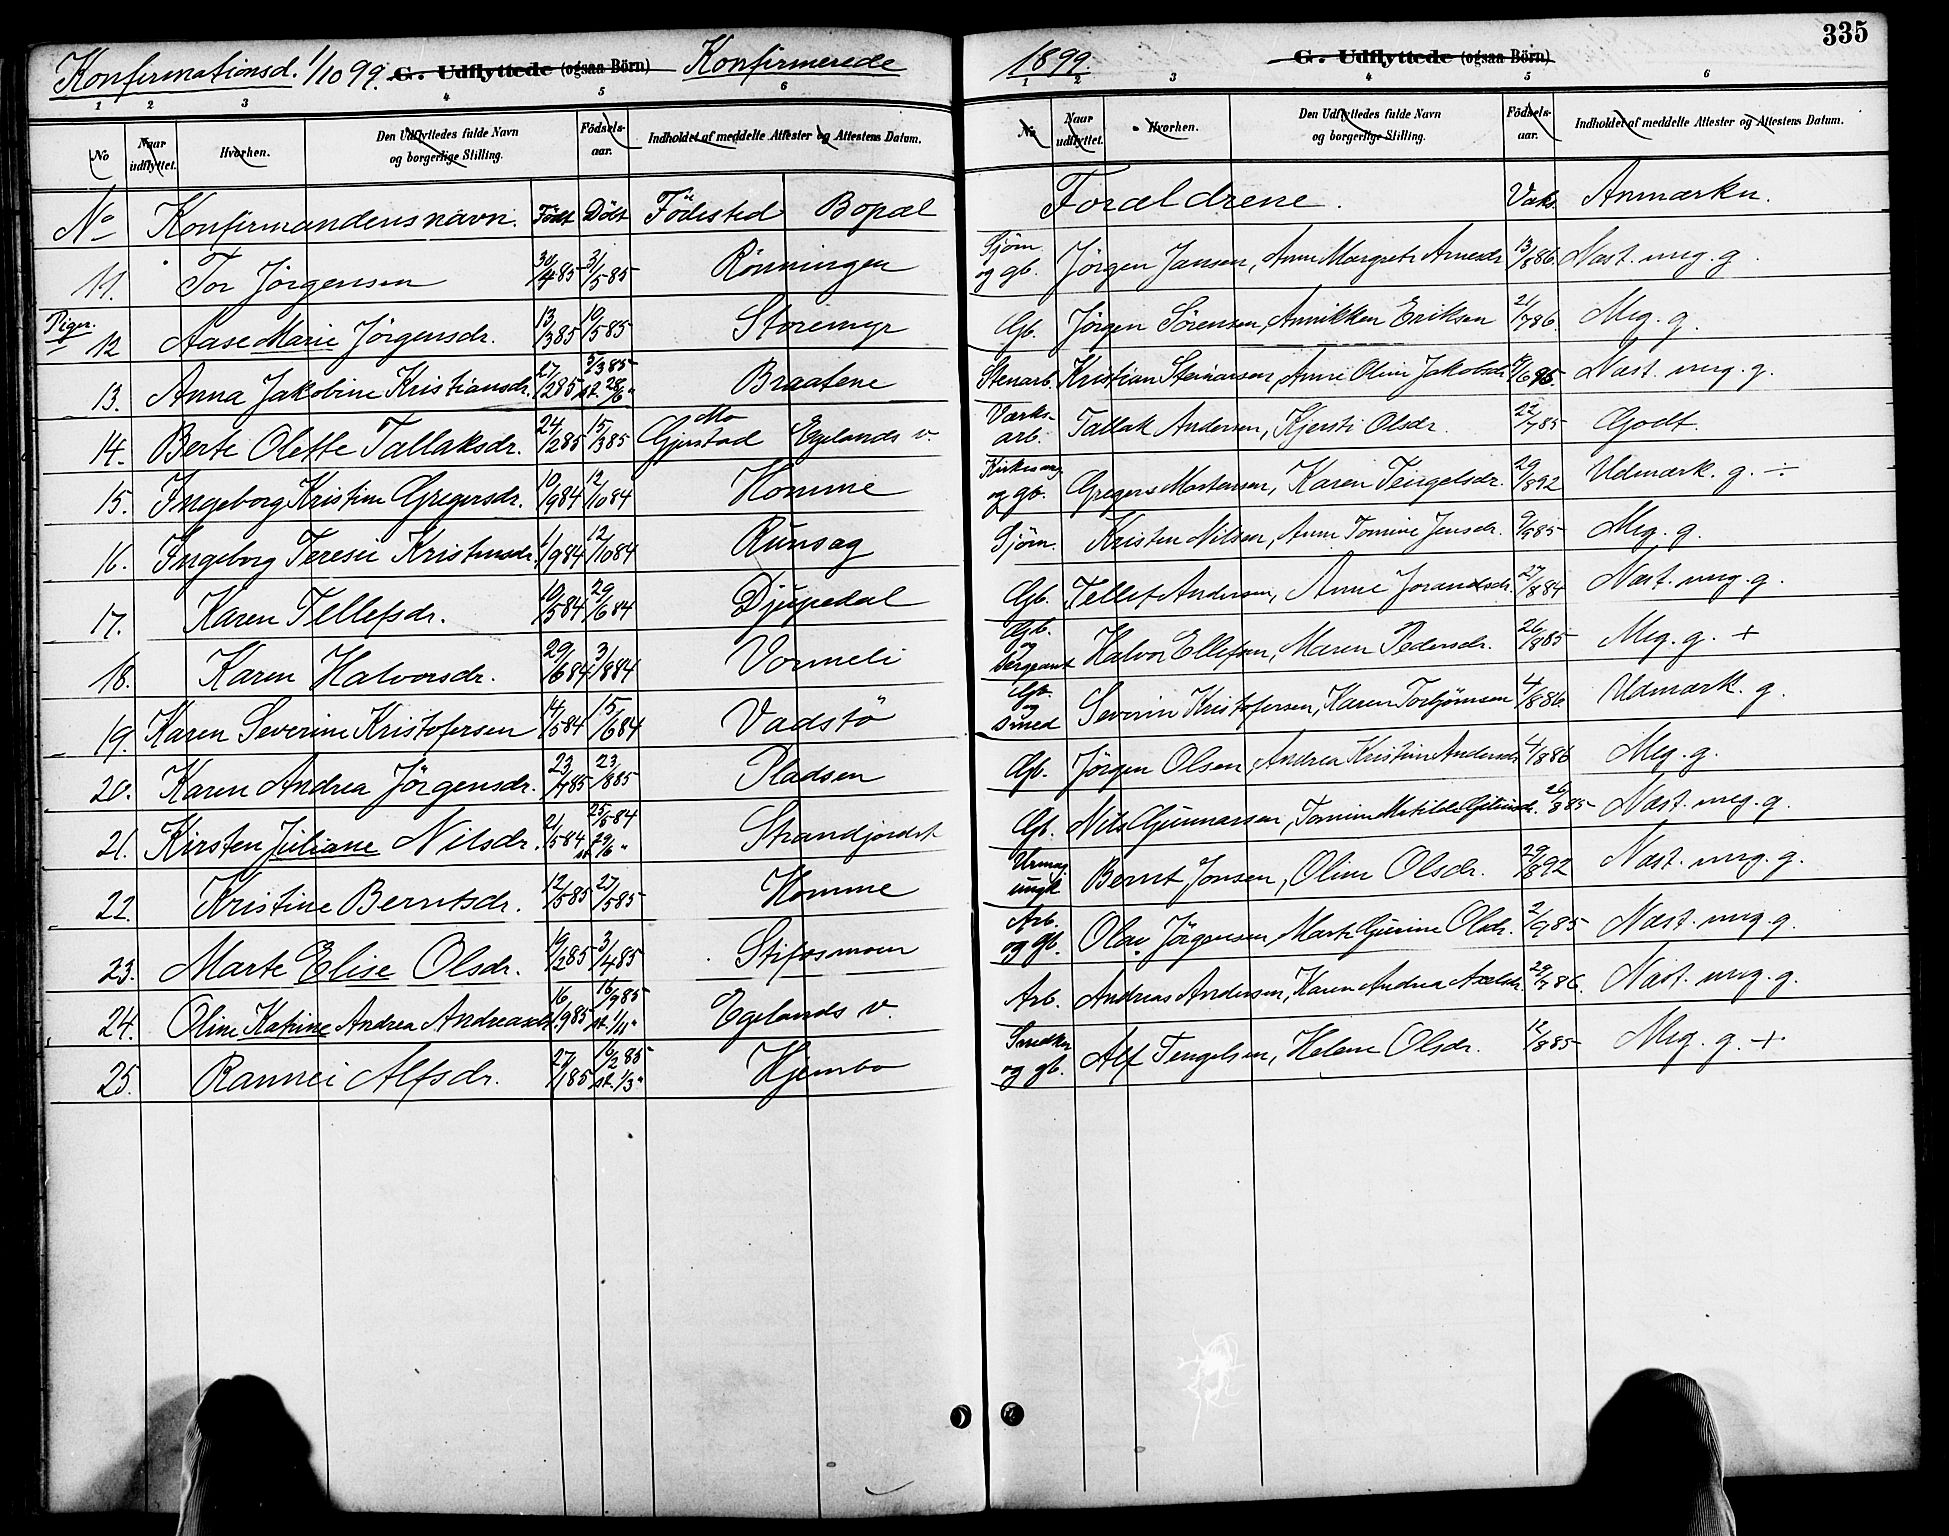 335
Konfirmationsd. 1/10 99. G. Udflyttede (ogsaa Börn) Konfirmerede 1899. G. Udflyttede (ogsaa Börn)
1 2 3 4 5 6 1 2 3 4 5 6
No Naar udflyttet. Hvorhen. Den Udflyttedes fulde Navn og borgerlige Stilling. Födsels-aar. Indholdet af meddelte Attester og Attestens Datum. No Naar udflyttet. Hvorhen. Den Udflyttedes fulde Navn og borgerlige Stilling. Födsels-aar. Indholdet af meddelte Attester og Attestens Datum.
No Konfirmandens navn. Födt Döbt Födested Bopæl Forældrene. Vaks. Anmærkn.
11. Tor Jörgensen 30/4 85 31/5 85 Rönningen Sjöm. og gb. Jörgen Jansen, Anne Margrete Arnesdr. 13/8 86. Næst. meg. g.
Piger. 12 Aase Marie Jörgensdr. 13/3 85 10/5 85 Storemyr Gb. Jörgen Sörensen, Annikken Eriksen 21/7 86. Meg. g.
13. Anna Jakobine Kristiansdr. 27/2 85 5/3 85 st. 28/6 " Braatene Stenarb. Kristian Steinarsen, Anne Oline Jakobsdr. Næst. meg. g.
14. Berte Olette Tallaksdr. 24/2 85 15/3 85 Mo Gjerstad Egelands v. Værks-arb. Tallak Andersen, Kjersti Olsdr. 22/7 85 Godt.
15. Ingeborg Kristine Gregersdr. 10/9 84 12/10 84 Homme Kirkesang. og gb. Gregers Mortensen, Karen Tengelsdr. 29/8 92 Udmærk. g. ÷
16. Ingeborg Teresie Kristensdr. 1/9 84 12/10 84 Runsag Sjöm. Kristen Nilsen, Anne Tomine Jensdr. 9/9 85 Meg. g.
17. Karen Tellefsdr. 10/5 84 29/6 84 Djupedal Gb. Tellef Andersen, Anne Jorandsdr. 27/8 84 Næst. meg. g.
18. Karen Halvorsdr. 29/6 84. 3/8 84 Vormeli Gb. og Sergeant Halvor Ellefsen, Maren Pedersdr. 26/8 85 Meg. g. +
19. Karen Severine Kristofersen 14/5 84 15/6 84 Vadstö Gb. og smed Severin Kristofersen, Karen Torbjörnsen 4/8 86 Udmærk. g.
20. Karen Andrea Jörgensdr. 23/7 85 23/8 85 Pladsen Gb. Jörgen Olsen, Andrea Kristine Andersdr. 4/8 86 Meg. g.
21. Kirsten Juliane Nilsdr. 21/5 84 25/5 84 st. 29/6 " Strandjordet Gb. Nils Gunnarsen, Tomine Matilde 26/8 85 Næst. meg. g.
22. Kristine Berntsdr. 12/5 85 27/5 85 Homme Urmag. ungk. Bernt Jonsen, Oline Olsdr. 29/8 92 Næst. meg. g.
23. Marte Elise Olsdr. 10/2 85 3/4 85 Stifosmoen Arb. og gb. Olav Jörgensen, Marte Gurine Olsdr. 2/9 85 Næst. meg. g.
24. Oline Katrine Andrea Andreasdr. 16/9 85 16/9 85 st. 1/11 " Egelands v. Arb. Andreas Andersen, Karen Andrea Axelsdr. 29/7 86. Næst. meg. g.
25. Rannei Alfsdr. 27/1 85 16/2 85 st. 1/3 " Hjembo og gb. Alf Tengelsen, Helene Olsdr. 12/8 85 Meg. g. +